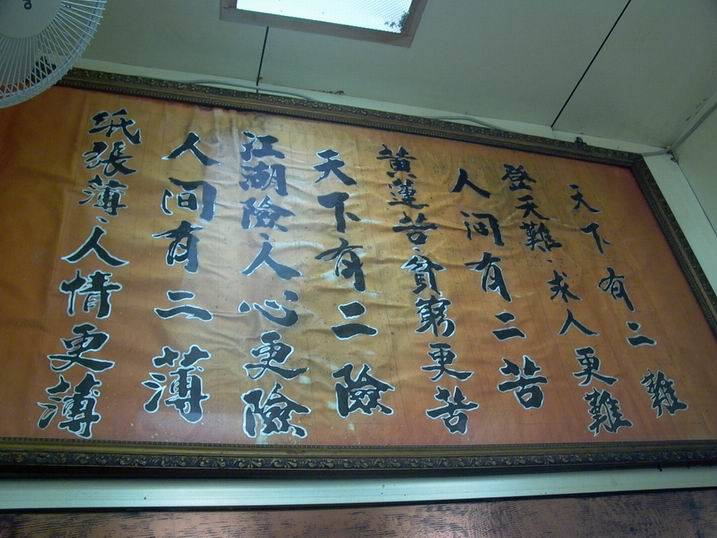 天下有二難
登天難、求人更難
人間有二苦
黃蓮苦、貧窮更苦
天下有二險
江湖險、人心更險
人间有二薄
纸張薄、人情更薄